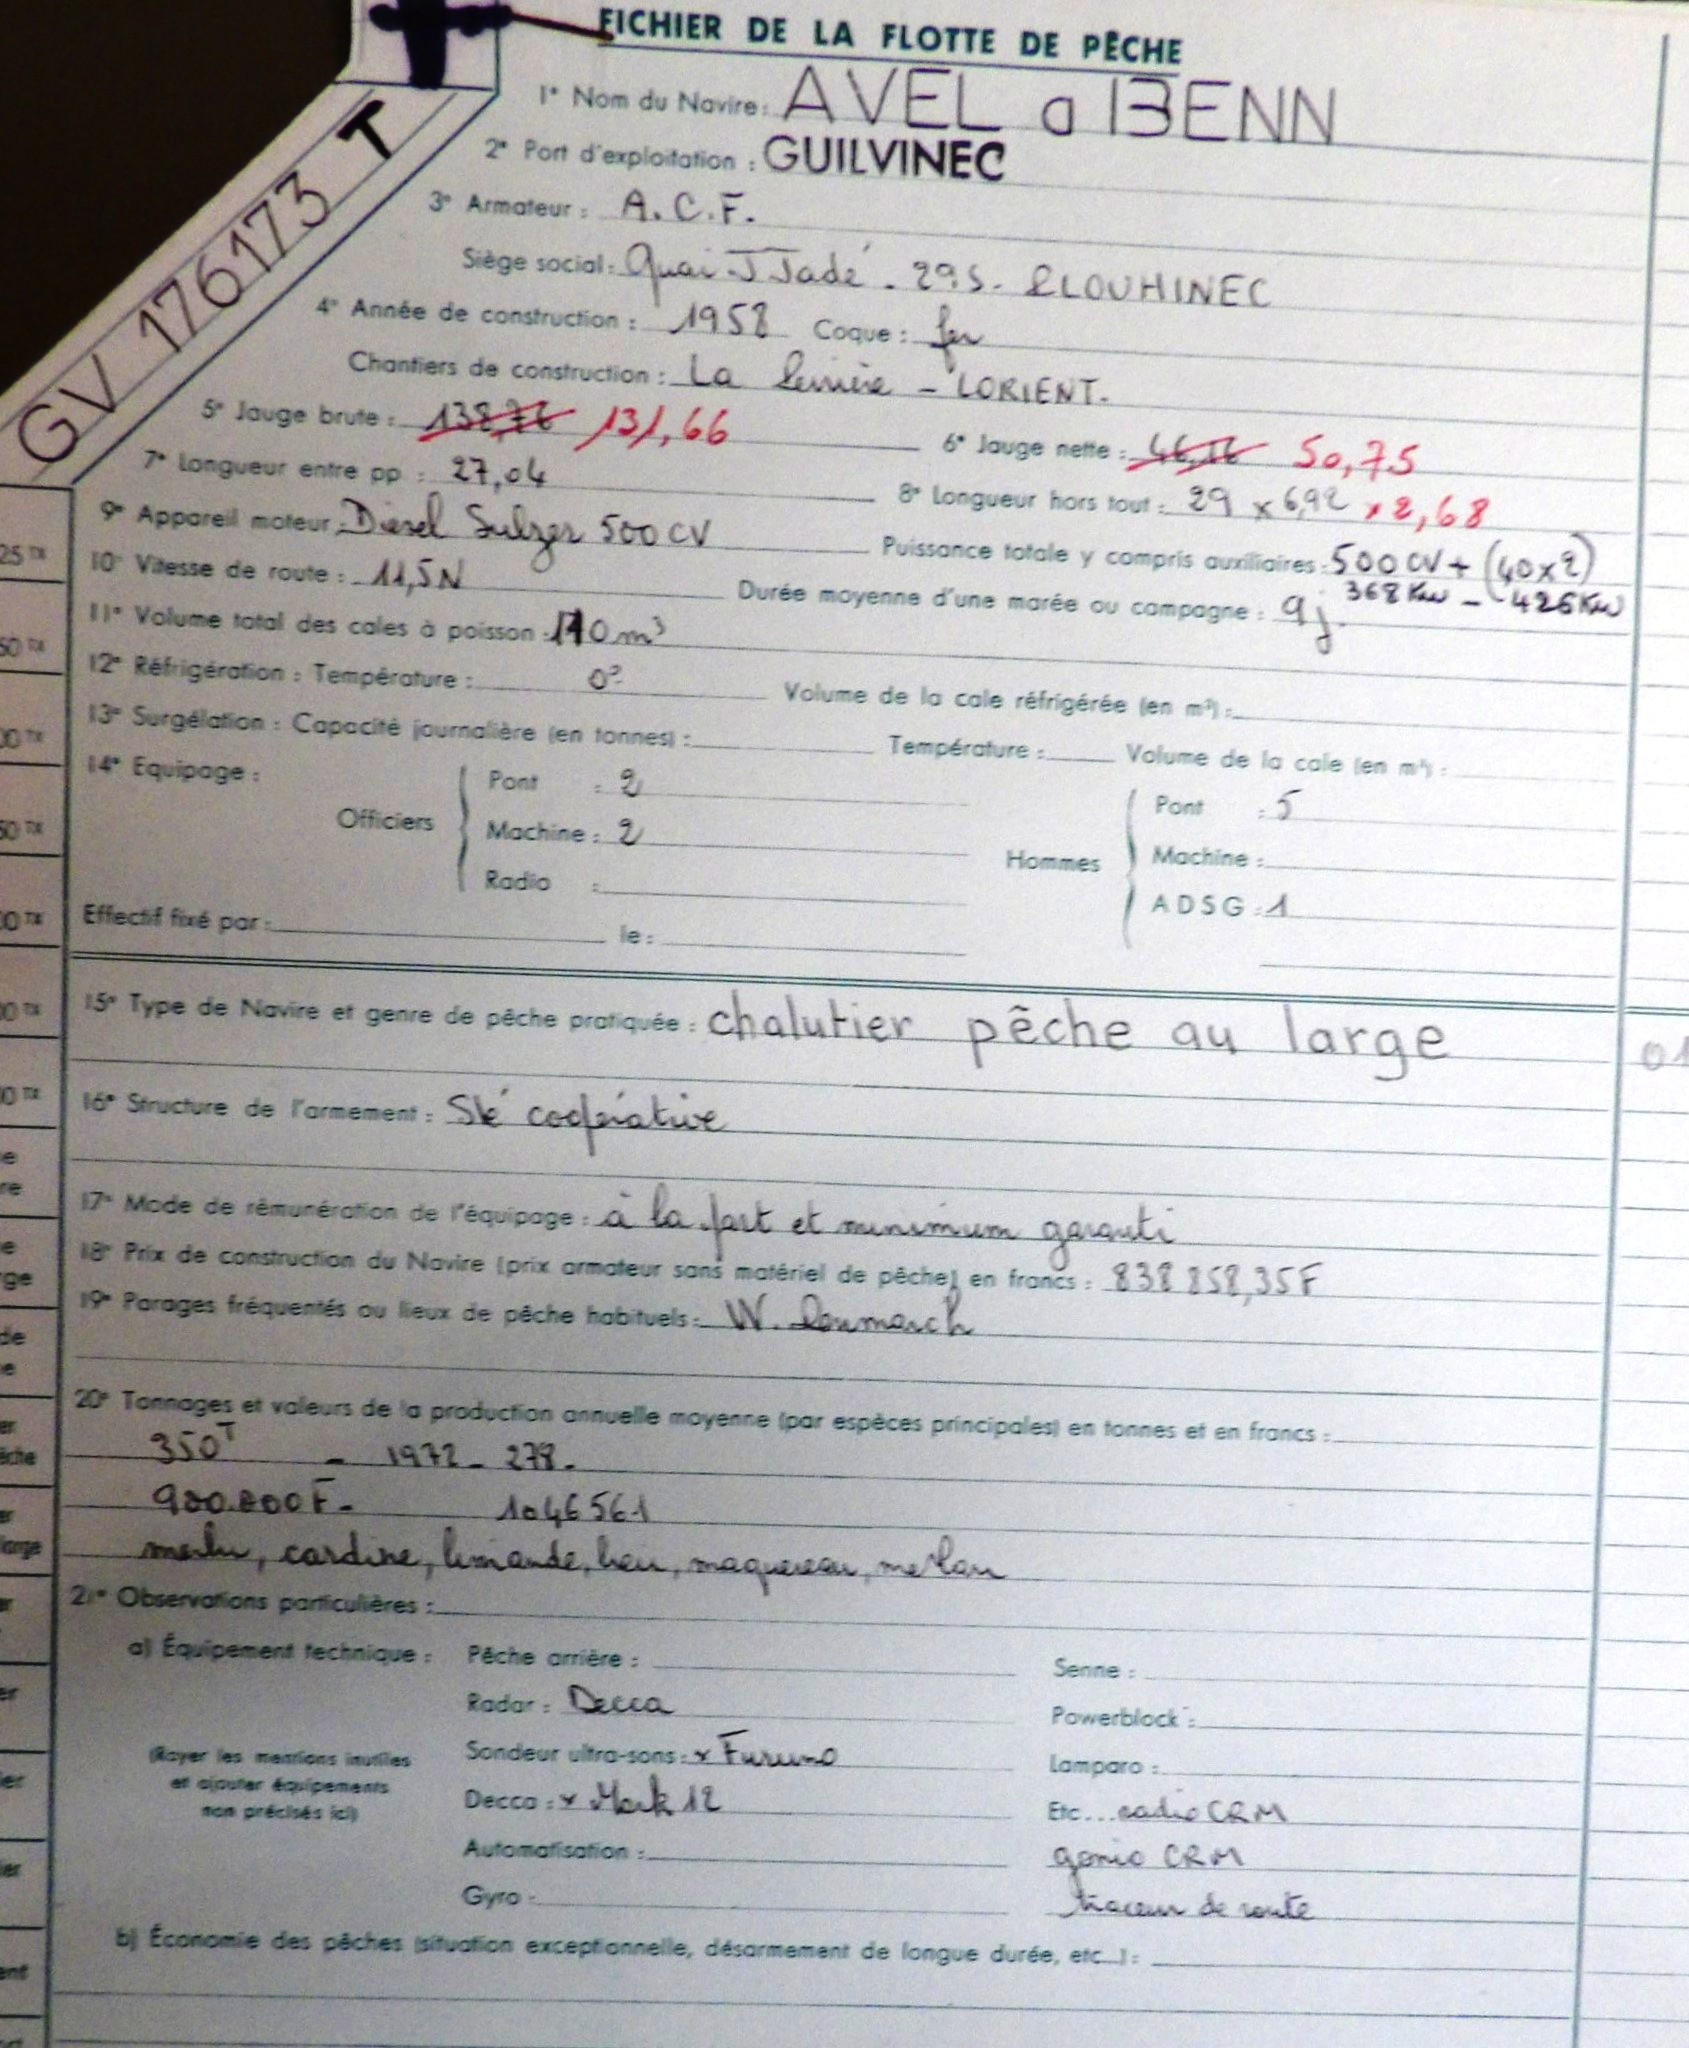 FICHIER DE LA FLOTTE DE PÊCHE
GV 176173 T
1° Nom du Navire : AVEL a BENN
2° Port d'exploitation : GUILVINEC
3° Armateur : A.C.F.
Siège social : Quai J Jadé - 29S - PLOUHINEC
4° Année de construction : 1958 Coque : fer
Chantiers de construction : La Perrière - LORIENT.
5° Jauge brute : 138,76 131,66 6° Jauge nette : 46,16 50,75
7° Longueur entre pp : 27,04 8° Longueur hors tout : 29 x 6,92 x 2,68
9° Appareil moteur : Diesel Sulzer 500 CV Puissance totale y compris auxiliaires : 500 CV + (40x2)
368 Kw - 426 Kw
10° Vitesse de route : 11,5 N Durée moyenne d'une marée ou campagne : 9 j.
11° Volume total des cales à poisson : 110 m³
12° Réfrigération : Température : 0° Volume de la cale réfrigérée (en m³) :
13° Surgélation : Capacité journalière (en tonnes) : Température : Volume de la cale (en m³) :
14° Equipage :
Officiers Pont : 2 Hommes Pont : 5
Machine : 2 Machine :
Radio : ADSG : 1
Effectif fixé par : le :
15° Type de Navire et genre de pêche pratiquée : chalutier pêche au large 01
16° Structure de l'armement : Sté coopérative
17° Mode de rémunération de l'équipage : à la part et minimum garanti
18° Prix de construction du Navire (prix armateur sans matériel de pêche) en francs : 838 858,35 F
19° Parages fréquentés ou lieux de pêche habituels : W. Penmarch
20° Tonnages et valeurs de la production annuelle moyenne (par espèces principales) en tonnes et en francs :
350 T - 1972 - 278.
900.000 F - 1046561
merlu, cardine, limande, lieu, maquereau, merlan
21° Observations particulières :
a) Équipement technique : Pêche arrière : Senne :
Radar : Decca Powerblock :
(Rayer les mentions inutiles
et ajouter équipements
non précisés ici)
Sondeur ultra-sons : x Furuno Lamparo :
Decca : x Mark 12 Etc... radio CRM
Automatisation : gonio CRM
Gyro : traceur de route
b) Économie des pêches (situation exceptionnelle, désarmement de longue durée, etc...) :